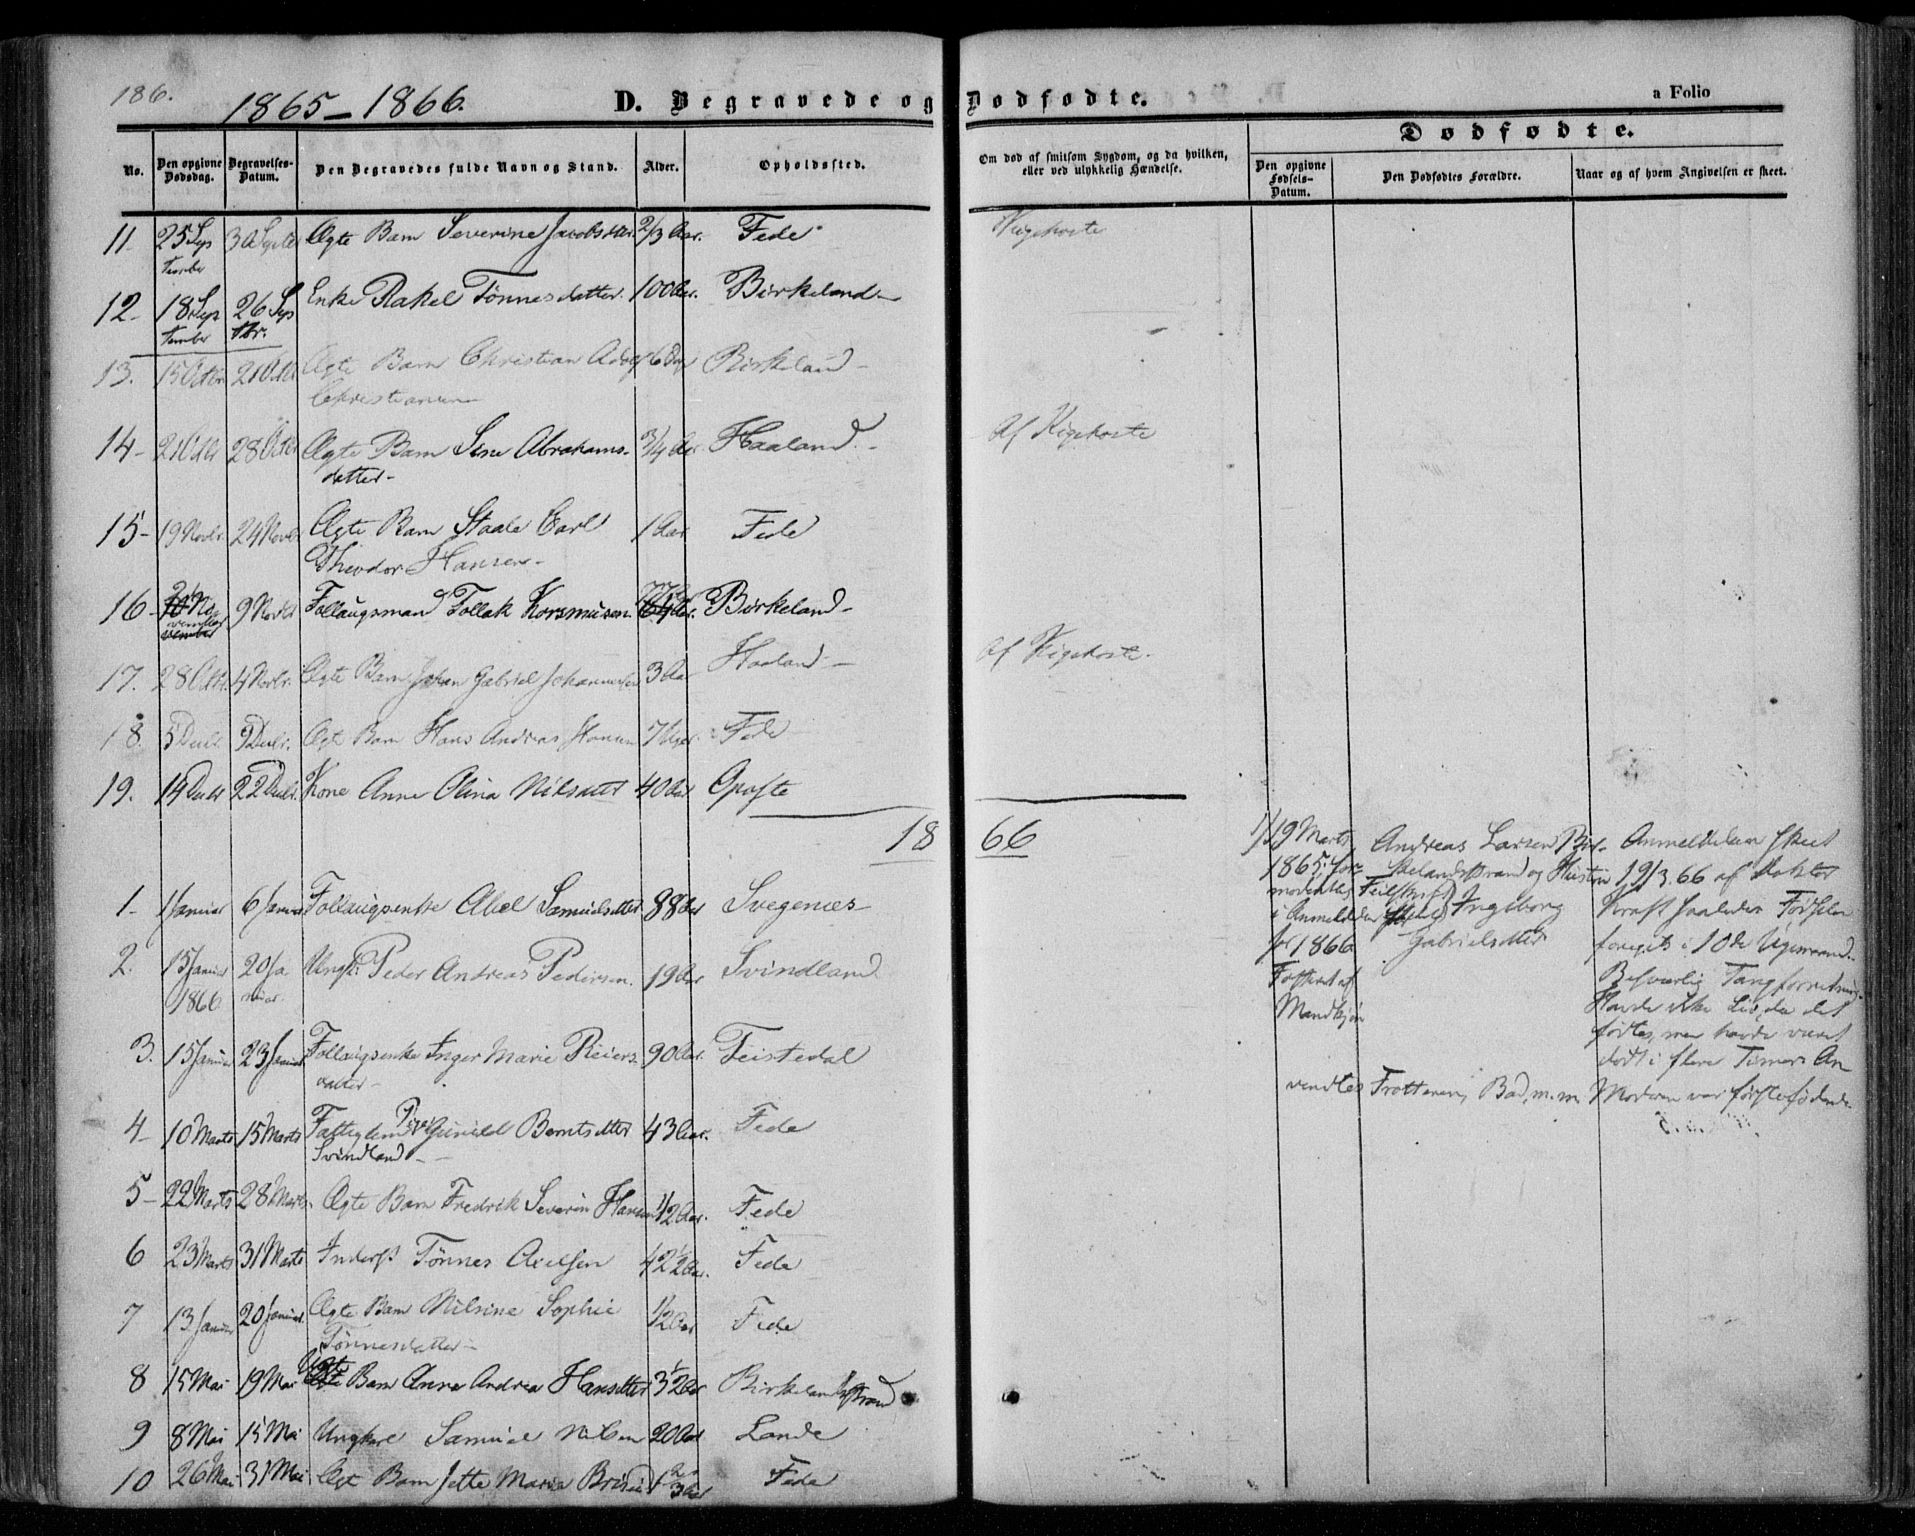 186.
1865 – 1866.
D. Begravede og Dødfødte.
a Folio
Dødfødte.
No. Den opgivne Dødsdag. Begravelses-Datum. Den Begravedes fulde Navn og Stand. Alder. Opholdssted. Om død af smitsom Sygdom, og da hvilken, eller ved ulykkelig Hændelse. Den opgivne Fødsels-Datum. Den Dødfødtes Forældre. Naar og af hvem Angivelsen er skeet.
11. 25 Sep 30 Septer Ægte Barn Severine Jacobsdtter. 2/3 Aar. Fede Kigehoste
tember
12. 18 Sep 26 Sep Enke Rakel Tönnesdatter. 100 Aar. Birkeland
tember tbr.
13. 15 Octbr 21 Octbr Ægte Barn Christian Adolf 6 Birkeland
Christiansen
14 21 Octbr 28 Octbr Ægte Barn Sine Abrahams- 3/4 Aar Haaland Af Kigehoste
datter
15 19 Novbr. 24 Novbr Ægte Barn Staale Carl 1 Aar Fede
Theodor Hansen
16 No 9 Novbr Follaugsmand Tollak Korsmusen 77 Aar. Birkeland
vember
vember
17. 28 Octbr. 4 Novbr. Ægte Barn Johan Gabriel Johannesen 3 Aar Haaland Af Kigehoste.
18. 5 Decbr. 9 Decbr. Ægte Barn Hans Andreas Hansen 7 Uger. Fede
19. 14 Decbr 22 Decbr. Kone Anne Olina Nilsdtter 40 Aar Opofte
18 66
1/ 19 Marts Andreas Larsen Bir- Anmeldelsen skeet
1865, for- kelandsstrand og Hustru 19/3 66 af Doktor
modentlig Feilskrift Ingeborg Kraft saaledes: Fødselen
i Anmeldelsen
for 1866 Gabrielsdtter foregik i 10de Ugemaaned.
Fosteret af Besværlig Tangforretning.
Mandkjøn Havde ikke Liv, da det
fødtes, men havde været
dødt i flere Timer. An-
vendtes Frottering, Bad, m. m. Moderen var førstefødende
1. 1 Januar 6 Januar Follaugsenke Abel Samuelsdtter 88 Aar Svegenæs
2. 15 Januar 20 Ja Ungk. Peder Andreas Pedersen. 19 Aar Svindland
1866 nuar.
3. 15 Januar 23 Januar Follaugsenke Inger Marie Reiers- 90 Aar. Feistedal
datter
4 10 Marts 15 Marts Fattiglem Pige Gunild Berntsdtter 43 Aar. Fede
Svindland
5 22 Marts 28 Marts Ægte Barn Fredrik Severin Hansen 1/2 Aar. Fede
6 23 Marts 31 Marts Inderst Tønnes Axelsen 42 1/2 Aar. Fede
7 13 Januar 20 Januar Ægte Barn Nilsine Sophie 1/2 Aar Fede
Tønnesdatter
8 15 Mai 19 Mai Uægte Barn Anna Andrea Hansdtter 3 1/2 Aar Birkelandsstrand
9 8 Mai 15 Mai Ungkarl Samuel Nilsen 20 Aar Lande
10 26 Mai 31 Mai Ægt Barn Jette Marie 1 2/3 Aar Fede